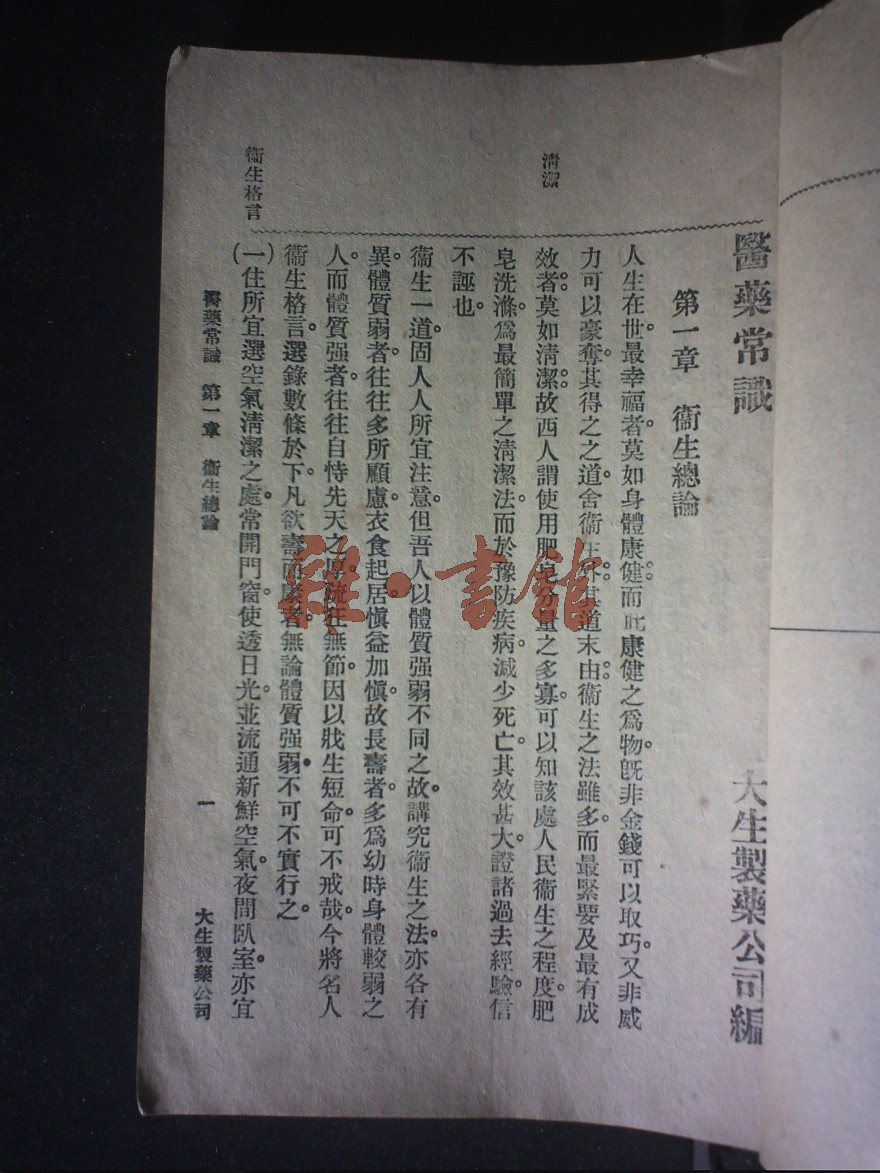 醫藥常識
大生製藥公司編
第一章 衞生總論
清潔
人生在世。最幸福者。莫如身體康健。而此康健之爲物。旣非金錢可以取巧。又非威
力可以豪奪。其得之之道。舍衞生外。其道末由。衞生之法雖多。而最緊要及最有成
效者。莫如清潔。故西人謂使用肥皂分量之多寡。可以知該處人民衞生之程度。肥
皂洗滌。爲最簡單之清潔法。而於豫防疾病。減少死亡。其效甚大。證諸過去經驗。信
不誣也。
衞生一道。固人人所宜注意。但吾人以體質强弱不同之故。講究衞生之法。亦各有
異。體質弱者。往往多所顧慮。衣食起居。愼益加愼。故長壽者。多爲幼時身體較弱之
人。而體質强者。往往自恃先天之厚。流狂無節。因以戕生短命。可不戒哉。今將名人
衞生格言。選錄數條於下。凡欲壽而康者。無論體質强弱。不可不實行之。
衞生格言
(一)住所宜選空氣清潔之處。常開門窗。使透日光。並流通新鮮空氣。夜間臥室。亦宜
醫藥常識 第一章 衞生總論 一 大生製藥公司
雜·書館